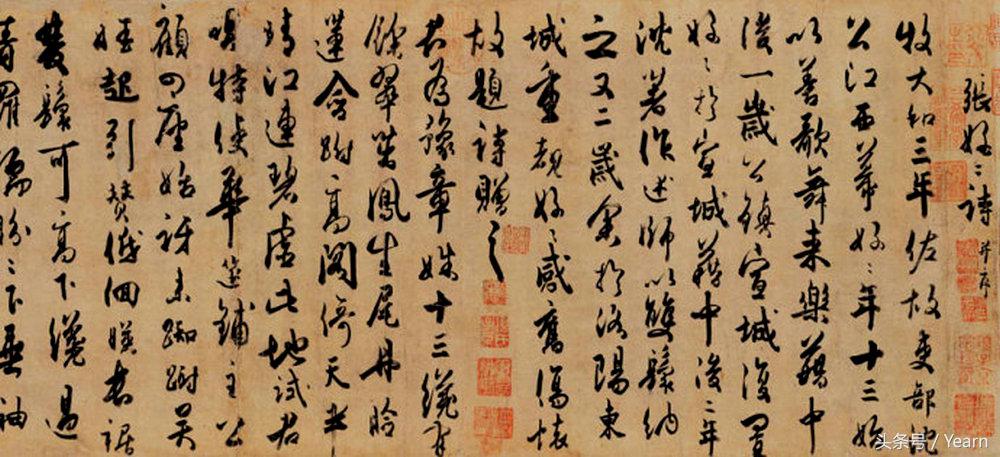 張好〻詩 并序
牧大和三年佐故吏部沈
公江西幕好〻年十三始
以善歌舞来樂籍中
後一歲公鎮宣城復置
好〻於宣城籍中後二年
沈著作述師以雙鬟納
之又二歲余於洛陽東
城重覩好〻感舊傷懷
故題詩贈之
君為豫章姝十三纔有
餘翠茁鳳生尾丹臉
蓮含跗高閣倚天半
晴江連碧虛此地試君
唱特使華筵鋪主公
顧四座始訝来踟蹰吴
娃起引贊低佪暎長裾
雙鬟可高下纔過
青羅襦盼〻下垂袖
头条号 / Yearn